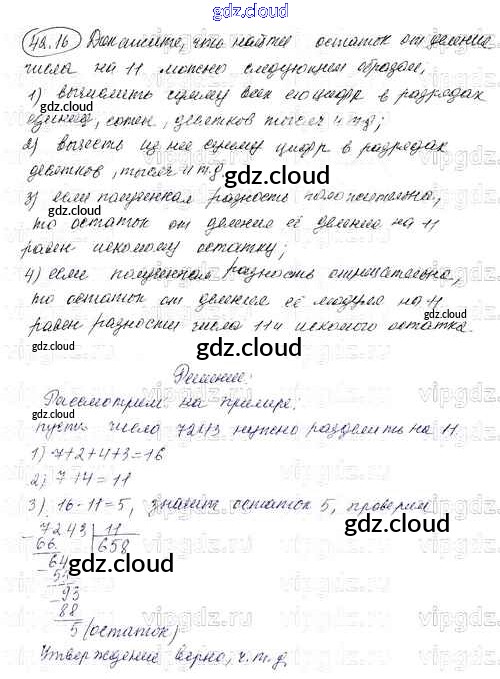 gdz.cloud
42.16 Докажите, что найти остаток от деления
числа на 11 можно следующим образом,
1) вычислить сумму всех его цифр в разрядах
единиц, сотен, десятков тысяч и т.д;
2) вычесть из нее сумму цифр в разрядах
десятков, тысяч и т.д
3) если полученная разность положительна,
то остаток от деления её деление на 11
равен искомому остатку;
4) если полученная разность отрицательна,
то остаток от деления её модуля на 11
равен разности числа 11 и искомого остатка.
Решение:
Рассмотрим на примере:
пусть число 7243 нужно разделить на 11
1) 7+2+4+3=16
2) 7+4=11
3) 16-11=5, значит остаток 5, проверим
7243 | 11
66 | 658
64
55
93
88
5 (остаток)
Утверждение верно, ч.т.д